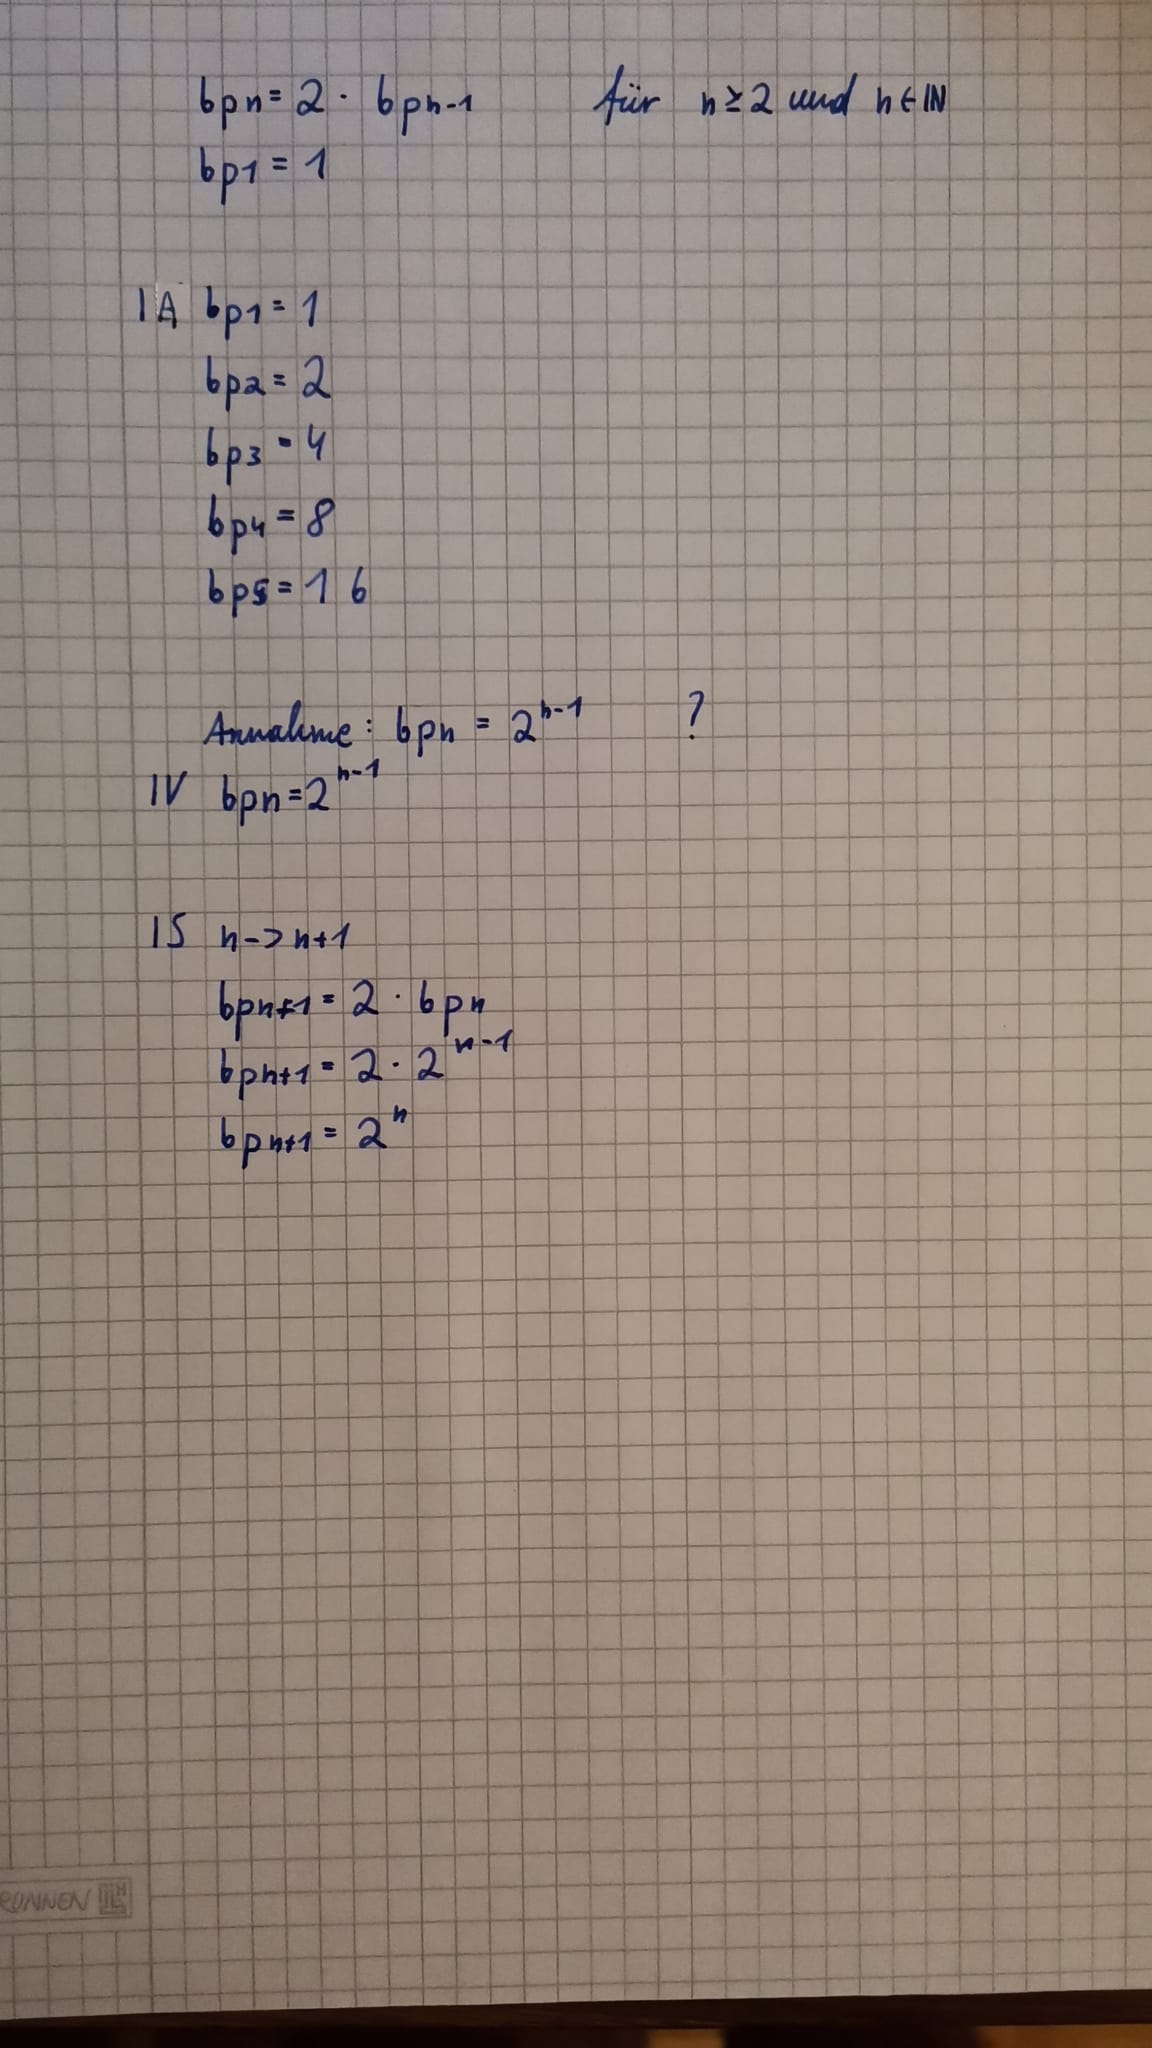 bpn = 2 · bpn-1 für n ≥ 2 und n ∈ ℕ
bp1 = 1
IA bp1 = 1
bp2 = 2
bp3 = 4
bp4 = 8
bp5 = 16
Annahme: bpn = 2^n-1 ?
IV bpn = 2^n-1
IS n -> n+1
bpn+1 = 2 · bpn
bpn+1 = 2 · 2^n-1
bpn+1 = 2^n
RONNEN